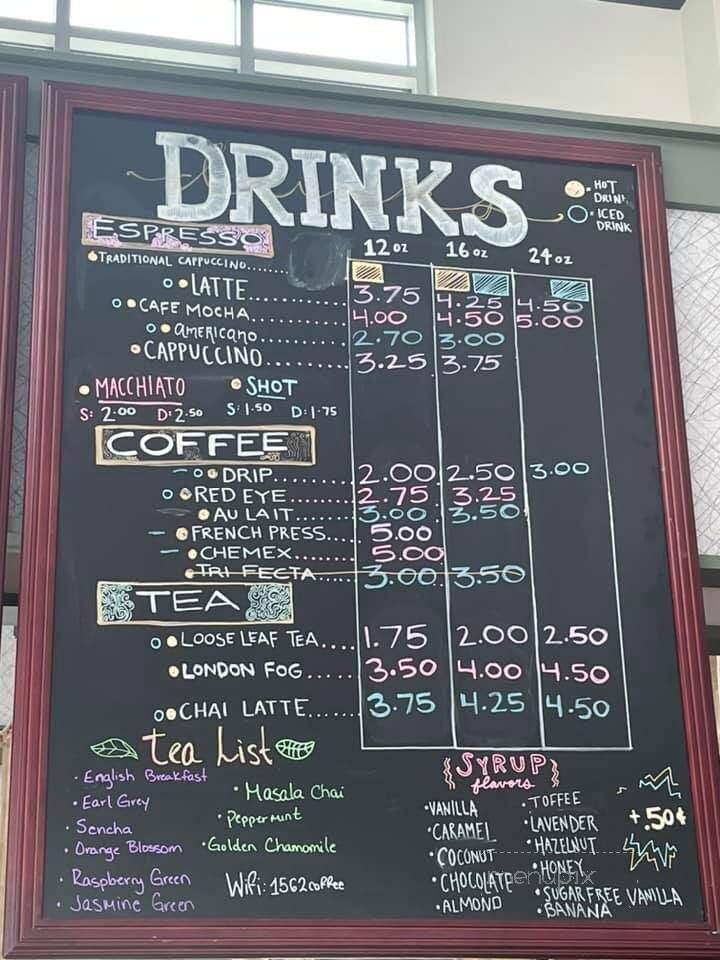 DRINKS
HOT DRINK
ICED DRINK
ESPRESSO
12 oz 16 oz 24 oz
TRADITIONAL CAPPUCCINO......
LATTE............ 3.75 4.25 4.50
CAFE MOCHA......... 4.00 4.50 5.00
AMERICANO......... 2.70 3.00
CAPPUCCINO......... 3.25 3.75
MACCHIATO SHOT
S: 2.00 D: 2.50 S: 1.50 D: 1.75
COFFEE
DRIP......... 2.00 2.50 3.00
RED EYE...... 2.75 3.25
AU LAIT...... 3.00 3.50
FRENCH PRESS.... 5.00
CHEMEX...... 5.00
TRI FECTA...... 3.00 3.50
TEA
LOOSE LEAF TEA.... 1.75 2.00 2.50
LONDON FOG...... 3.50 4.00 4.50
CHAI LATTE...... 3.75 4.25 4.50
Tea List
• English Breakfast
• Earl Grey
• Sencha
• Orange Blossom
• Raspberry Green
• Jasmine Green
• Masala Chai
• Peppermint
• Golden Chamomile
WiFi: 1562coffee
SYRUP
flavors
• VANILLA
• CARAMEL
• COCONUT
• CHOCOLATE
• ALMOND
• TOFFEE
• LAVENDER
• HAZELNUT
• HONEY
• SUGAR FREE VANILLA
• BANANA
+.50¢
menupix